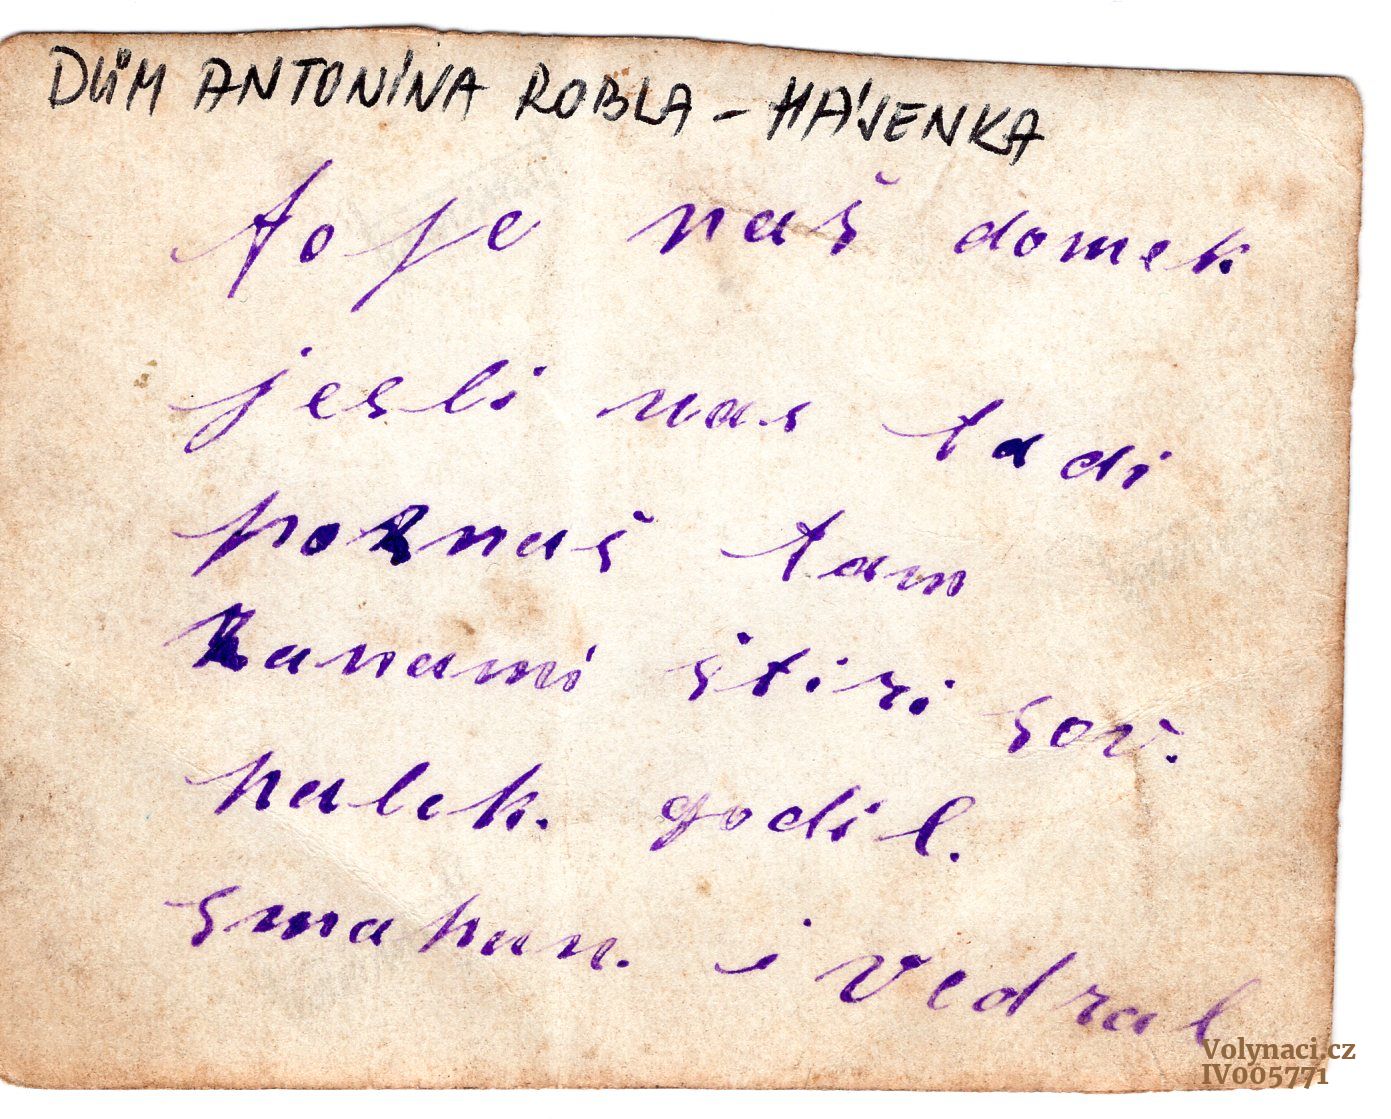 DŮM ANTONÍNA ROBLA – HÁJENKA
to je naš domek
jesli nas tadi
poznaš tam
Zanami štiri sov.
halek. godil.
smahun. i Vedral
Volynaci.cz
IV005771